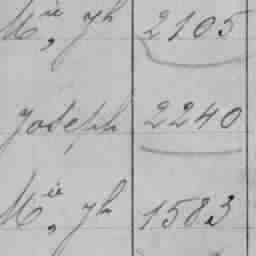 Mie, Jh 2105
Joseph 2240
Mie, Jh 1583